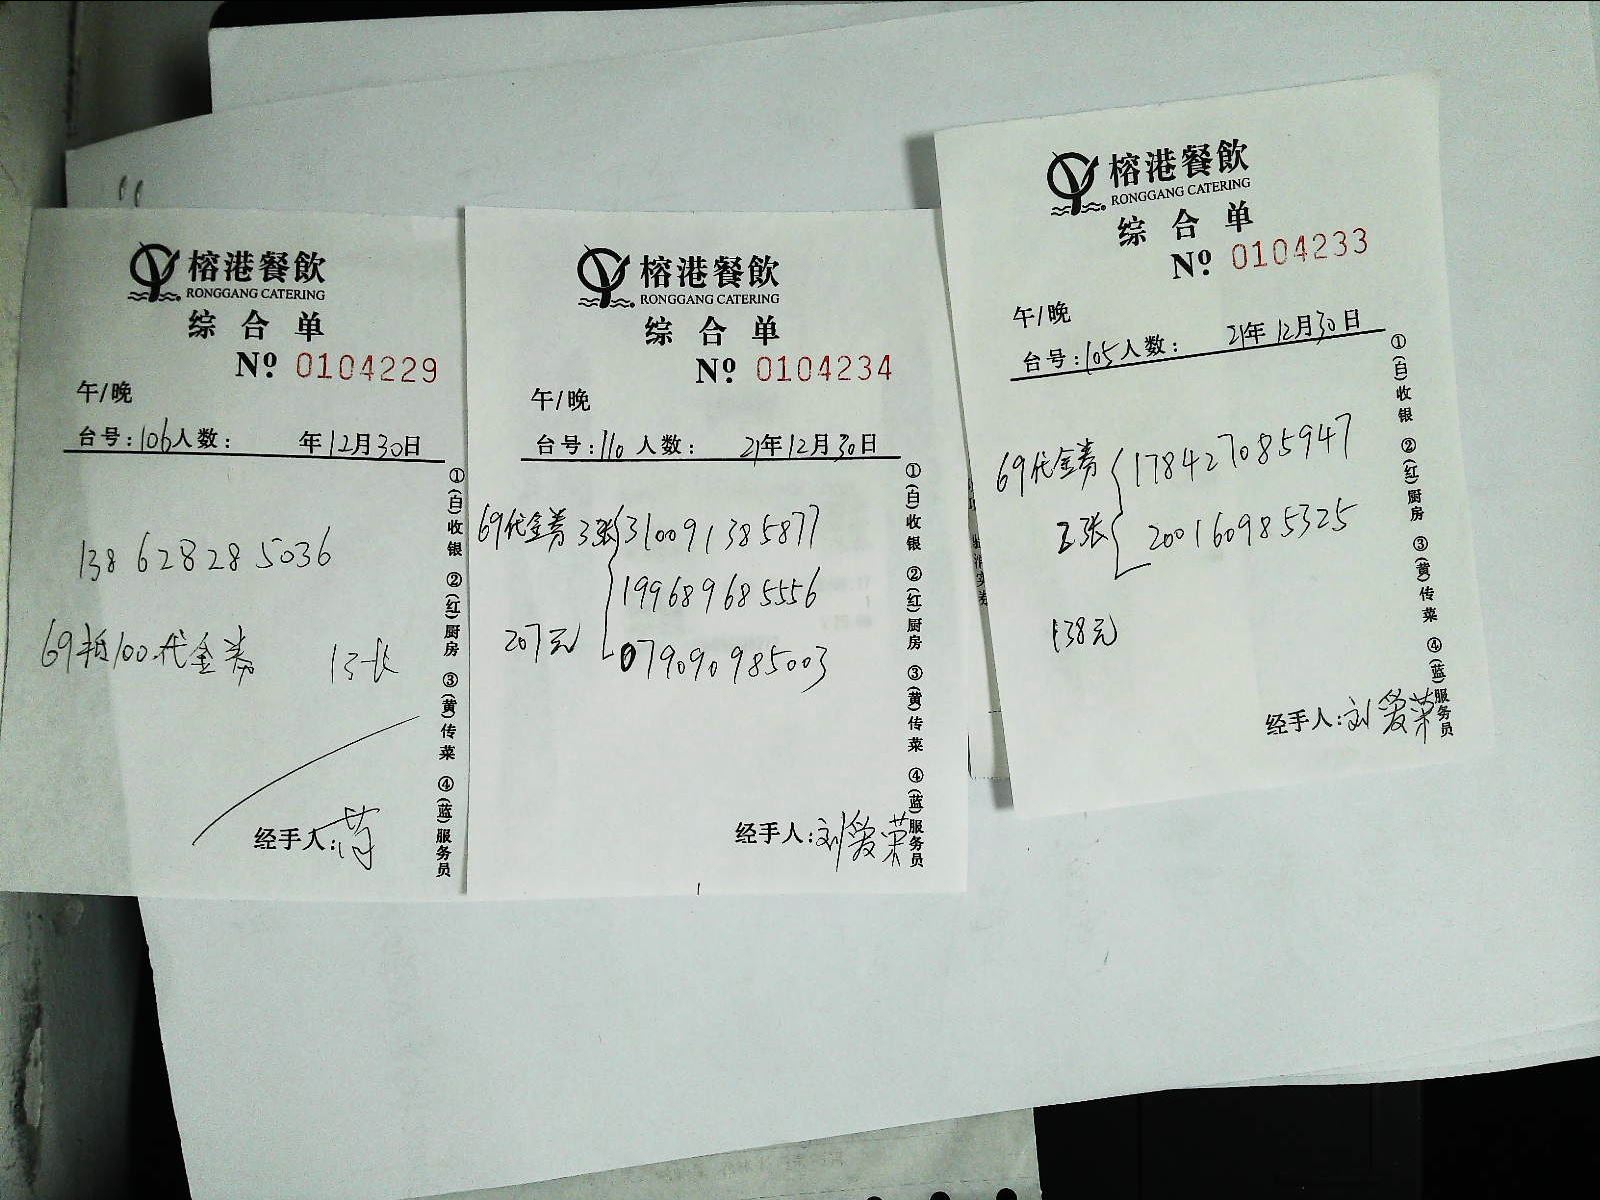 榕港餐飲
RONGGANG CATERING
综合单
№ 0104229
午/晚
台号:106人数: 年12月30日
138628285036
69抵100代金券 1张
经手人:
①(白)收银 ②(红)厨房 ③(黄)传菜 ④(蓝)服务员
榕港餐飲
RONGGANG CATERING
综合单
№ 0104234
午/晚
台号:110 人数: 21年12月30日
69代金券 3张 310091385877
199689685556
207元 079090985003
经手人:刘爱荣
①(白)收银 ②(红)厨房 ③(黄)传菜 ④(蓝)服务员
榕港餐飲
RONGGANG CATERING
综合单
№ 0104233
午/晚
台号:105人数: 21年12月30日
69代金券 178427085947
2张 200160985325
138元
经手人:刘爱荣
①(白)收银 ②(红)厨房 ③(黄)传菜 ④(蓝)服务员